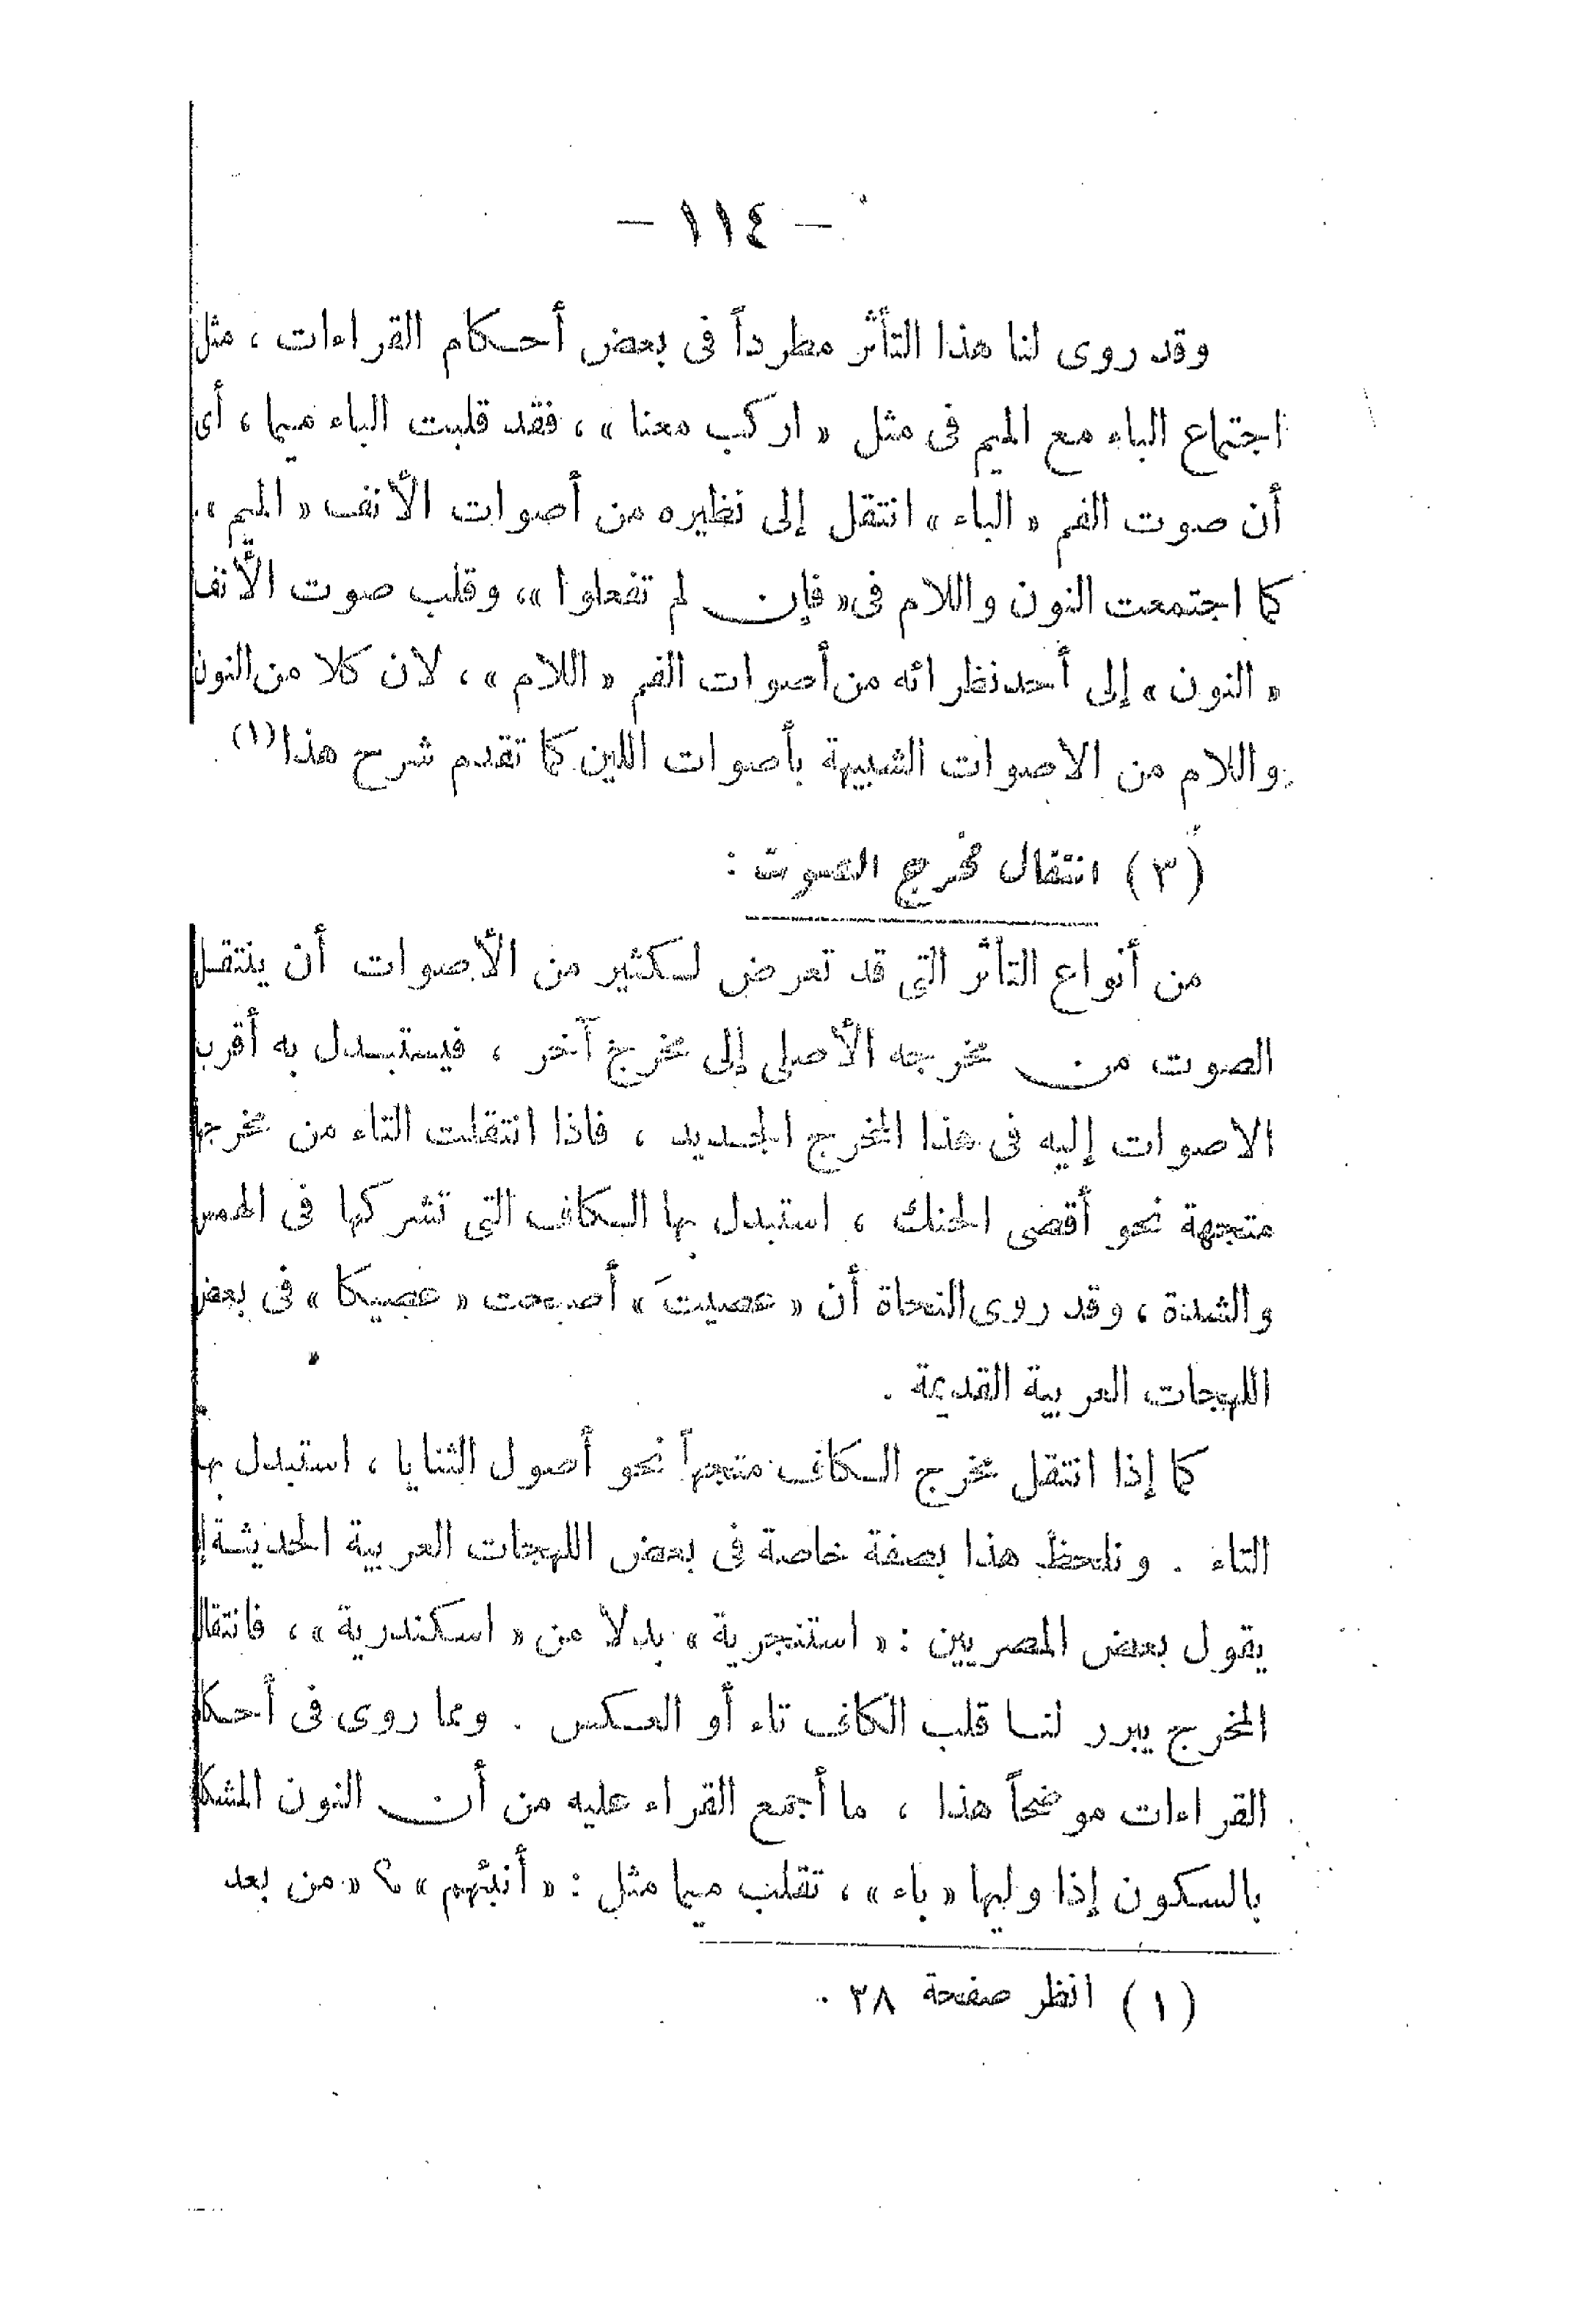 — ١١٤ —
وقد روى لنا هذا التأثر مطرداً فى بعض أحكام القراءات ، مثل
اجتماع الباء مع الميم فى مثل « اركب معنا » ، فقد قلبت الباء ميما ، أى
أن صوت الفم « الباء » انتقل إلى نظيره من أصوات الأنف « الميم » .
كما اجتمعت النون واللام فى « فإن لم تفعلوا » ، وقلب صوت الأنف
« النون » إلى أحد نظرائه من أصوات الفم « اللام » ، لان كلا من النون
واللام من الاصوات الشبيهة بأصوات اللين كما تقدم شرح هذا (١) .
(٣) انتقال مخرج الصوت :
من أنواع التأثر التى قد تعرض لكثير من الأصوات أن ينتقل
الصوت من مخرجه الأصلى إلى مخرج آخر ، فيستبدل به أقرب
الاصوات إليه فى هذا المخرج الجديد ، فاذا انتقلت التاء من مخرجها
متجهة نحو أقصى الحنك ، استبدل بها الكاف التى تشركها فى الهمس
والشدة ، وقد روى النحاة أن « عصيتَ » أصبحت « عصيكا » فى بعض
اللهجات العربية القديمة .
كما إذا انتقل مخرج الكاف متجهاً نحو أصول الثنايا ، استبدل بها
التاء . ونلحظ هذا بصفة خاصة فى بعض اللهجات العربية الحديثة إ
يقول بعض المصريين : « استنجرية » بدلا من « اسكندرية » ، فانتقال
المخرج يبرر لنا قلب الكاف تاء أو العكس . ومما روى فى أحكا
القراءات موضحاً هذا ، ما أجمع القراء عليه من أن النون المشكا
بالسكون إذا وليها « باء » ، تقلب ميما مثل : « أنبئهم » ؟ « من بعد
(١) انظر صفحة ٣٨ .